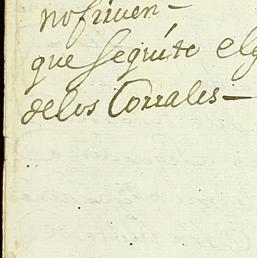 no sirven-
que seguite el
delos Corrales-